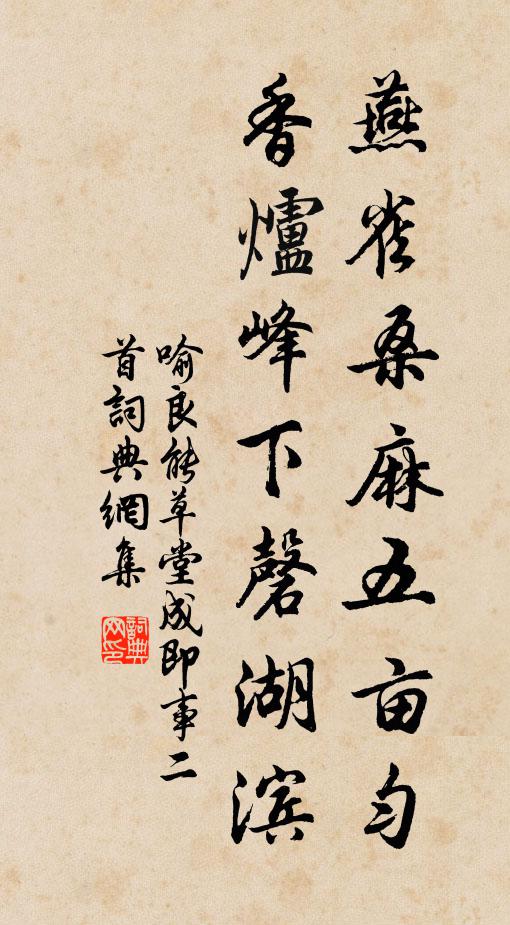 燕雀桑麻五亩匀
香爐峰下磬湖滨
喻良能草堂成即事二
首詞典網集
詞典
网印